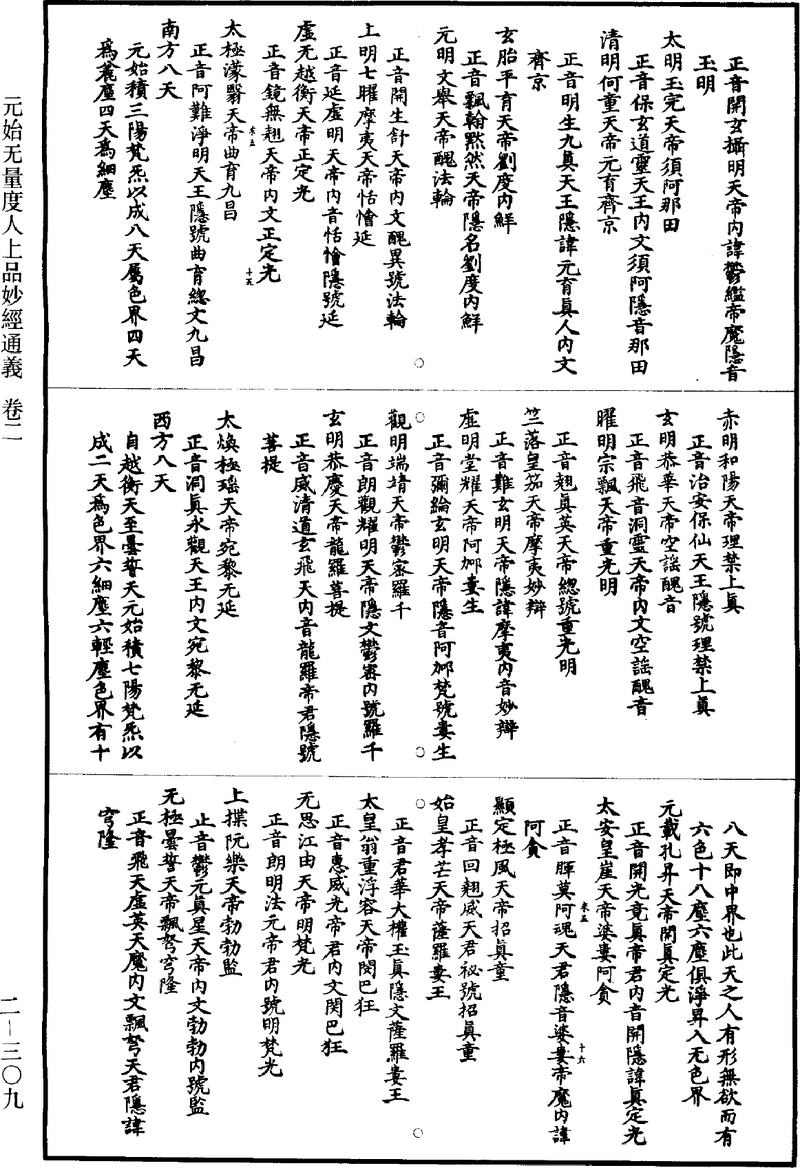 正音開玄攝明天帝內諱鬱繿帝魔隱音
玉明
太明玉完天帝須阿那田
正音保玄道靈天王內文須阿隱音那田
清明何童天帝元育齊京
正音明生九真天王隱諱元育真人內文
齊京
玄胎平育天帝劉度內鮮
正音飄翰黙然天帝隱名劉度內鮮
元明文舉天帝醜法輪
正音開生計天帝內文醜異號法輪
上明七曜摩夷天帝恬懀延
正音延虛明天帝內音恬懀隱號延
虛无越衡天帝正定光
正音鏡無翹天帝內文正定光
十五
太極濛翳天帝曲育九昌
正音阿難淨明天王隱號曲育緫文九昌
南方八天
元始積三陽梵炁以成八天屬色界四天
為麄塵四天為細塵
赤明和陽天帝理禁上真
正音治安保仙天王隱號理禁上真
玄明恭華天帝空謡醜音
正音飛音洞靈天帝內文空謡醜音
曜明宗飄天帝重光明
正音翹真英天帝緫號重光明
竺落皇笳天帝摩夷妙辯
正音難玄明天帝隱諱摩夷內音妙辯
虛明堂耀天帝阿䢵婁生
正音彌綸玄明天帝隱音阿䢵梵號婁生
觀明端靖天帝鬱密羅千
正音朗觀耀明天帝隱文鬱密內號羅千
玄明恭慶天帝龍羅菩提
正音威清道玄飛天內音龍羅帝君隱號
菩提
太煥極瑶天帝宛黎无延
正音洞真永觀天王內文宛黎无延
西方八天
自越衡天至曇誓天元始積七陽梵炁以
成二天為色界六細塵六輕塵色界有十
八天即中界也此天之人有形無欲而有
六色十八塵六塵俱淨昇入无色界
元載孔昇天帝開真定光
正音開光竟真帝君內音開隱諱真定光
太安皇崖天帝婆婁阿貪
正音暉莫阿魂天君隱音婆婁帝魔內諱
十六
阿貪
顯定極風天帝招真童
正音回翹威天君祕號招真童
始皇孝芒天帝薩羅婁王
正音君華大權玉真隱文薩羅婁王
太皇翁重浮容天帝閔巴狂
正音惠威光帝君內文閔巴狂
无思江由天帝明梵光
正音朗明法元帝君內號明梵光
上揲阮樂天帝勃勃監
正音鬱元真星天帝內文勃勃內號監
无極曇誓天帝飄弩穹隆
正音飛天虛英天魔內文飄弩天君隱諱
穹隆
元始无量度人上品妙經通義　卷二
二－三〇九